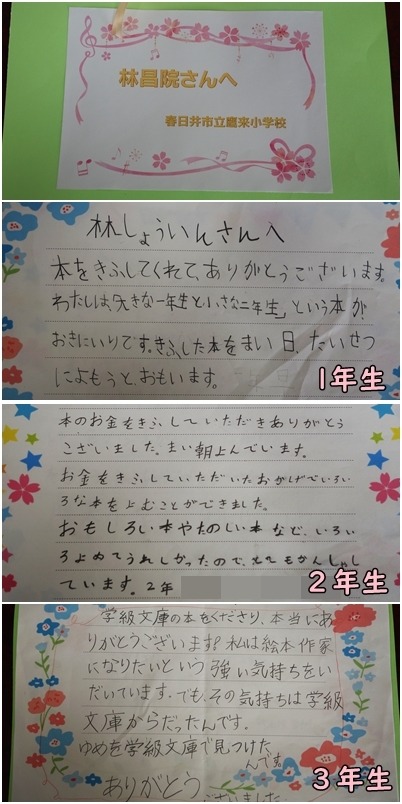 林昌院さんへ
春日井市立鷹来小学校
林しょういんさんへ
本をきふしてくれて、ありがとうございます。
わたしは、「大きな一年生と小さな二年生」という本が
おきにいりです。きふした本をまい日、たいせつ
によもうと、おもいます。
1年生
本のお金をきふしていただきありがとう
ございました。まい朝よんでいます。
お金をきふしていただいたおかげでいろい
ろな本をよむことができました。
おもしろい本やたのしい本など、いろい
ろよめてうれしかったので、とてもかんしゃし
ています。2年
2年生
学級文庫の本をくださり、本当にあ
りがとうございます!私は絵本作家
になりたいという強い気持ちをい
だいています。でも、その気持ちは学級
文庫からだったんです。
ゆめを学級文庫で見つけた
んです。
ありがとう
ございました
3年生